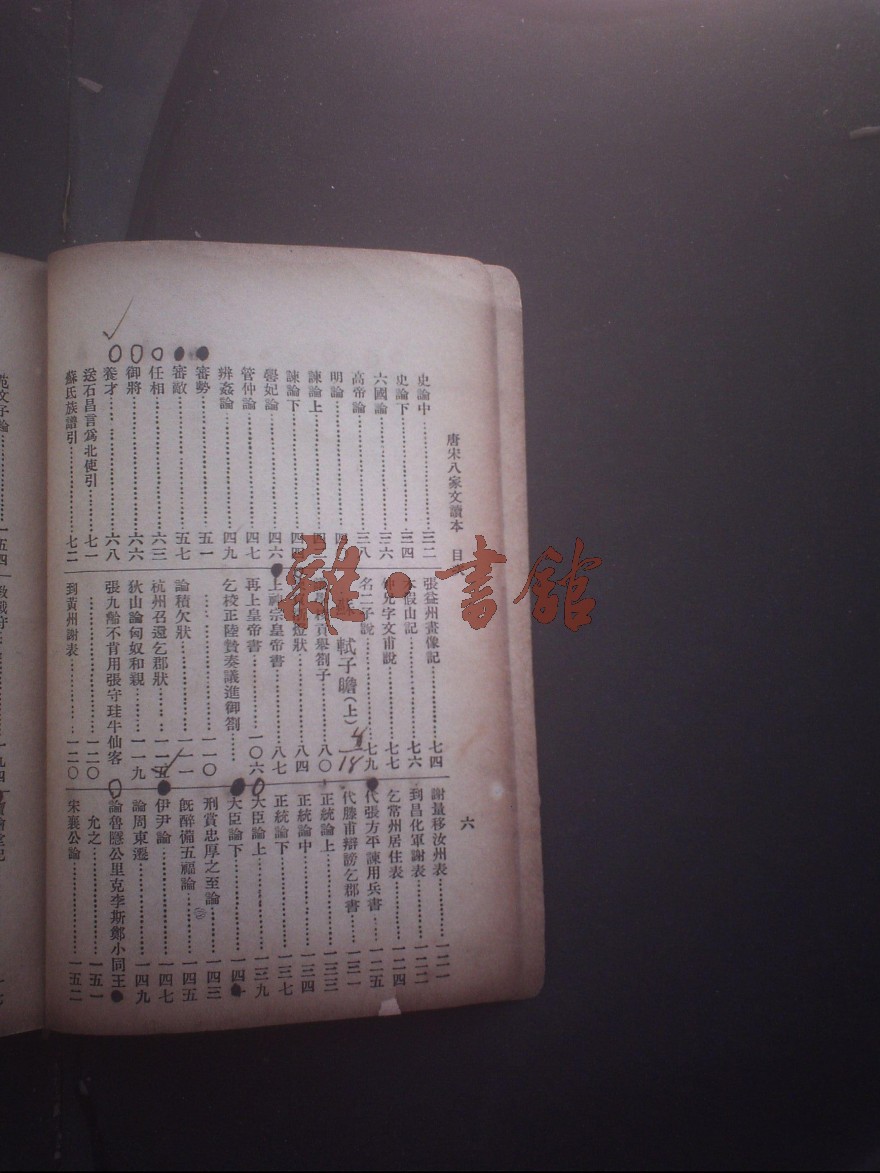 唐宋八家文讀本 目
六
史論中…………三二
史論下…………三四
六國論…………三六
高帝論…………三八
明論
諫論上
諫論下
嚳妃論…………四六
管仲論…………四七
辨姦論…………四九
審勢…………五一
審敵…………五七
任相…………六三
御將…………六六
養才…………六八
送石昌言爲北使引…………七一
蘇氏族譜引…………七二
張益州畫像記…………七四
假山記…………七六
兄字文甫說…………七七
名二子說…………七九
軾子瞻(上)
貢舉劄子…………八〇
燈狀…………八四
上神宗皇帝書…………八七
再上皇帝書…………一〇六
乞校正陸贄奏議進御劄
…………一一〇
論積欠狀…………一一一
杭州召還乞郡狀…………一一五
狄山論匈奴和親…………一一九
張九齡不肯用張守珪牛仙客
…………一二〇
到黃州謝表…………一二〇
謝量移汝州表…………一二一
到昌化軍謝表…………一二二
乞常州居住表…………一二四
代張方平諫用兵書…………一二五
代滕甫辯謗乞郡書…………一三一
正統論上…………一三三
正統論中…………一三四
正統論下…………一三七
大臣論上…………一三九
大臣論下…………一四
刑賞忠厚之至論…………一四三
旣醉備五福論…………一四五
伊尹論…………一四七
論周東遷…………一四九
論魯隱公里克李斯鄭小同王
允之…………一五一
宋襄公論…………一五二
范文子論…………一五四
雜·書館